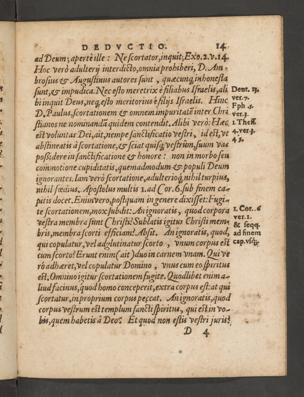 DEDVCTIO. 14.
ad Deum; apertè ille: Ne scortator, inquit, Exo. 2. v. 14.
Hoc verò adulterij interdicto, omnia prohiberi, D. Am-
brosius & Augustinus autores sunt, quæcunq; inhonesta
sunt, & impudica. Nec esto meretrix è filiabus Israelis, ali
bi inquit Deus, neq; esto meritorius è filijs Israelis. Hinc
D. Paulus, scortationem & omnem impuritatē inter Chri
stianos ne nominandā quidem contendit. Alibi verò: Hæc
est voluntas Dei, ait, nempe sanctificatio vestri, id est, vt
abstineatis à scortatione, & sciat quisq; vestrûm, suum vas
possidere in sanctificatione & honore: non in morbo seu
commotione cupiditatis, quemadmodum & populi Deum
ignorantes. Iam verò scortatione, adulterioq́; nihil turpius,
nihil fœdius. Apostolus multis 1. ad Cor. 6. sub finem ca-
pitis docet. Enimvero, postquam in genere dixisset: Fugi-
te scortationem, mox subdit: An ignoratis, quod corpora
vestra membra sint Christi? Sublatis igitur Christi mem-
bris, membra scorti efficiam? Absit. An ignoratis, quod,
qui copulatur, vel adglutinatur scorto, vnum corpus est
cum scorto? Erunt enim (ait) duo in carnem vnam. Qui ve
rò adheret, vel copulatur Domino, vnus cum eo spiritus
est. Omnino igitur scortationem fugite. Quodlibet enim a-
liud facinus, quod homo conceperit, extra corpus est: at qui
scortatur, in proprium corpus peccat. An ignoratis, quod
corpus vestrum est templum sancti spiritus, qui est in vo-
bis, quem habetis à Deo? Et quod non estis vestri juris?
D 4
Dent. 23.
ver. 7.
Eph. 5.
ver. 3.
1. Thess.
4. ver. 3.
4. 5.
1. Cor. 6
ver. 1.
& seqq.
ad finem
cap. vsq;